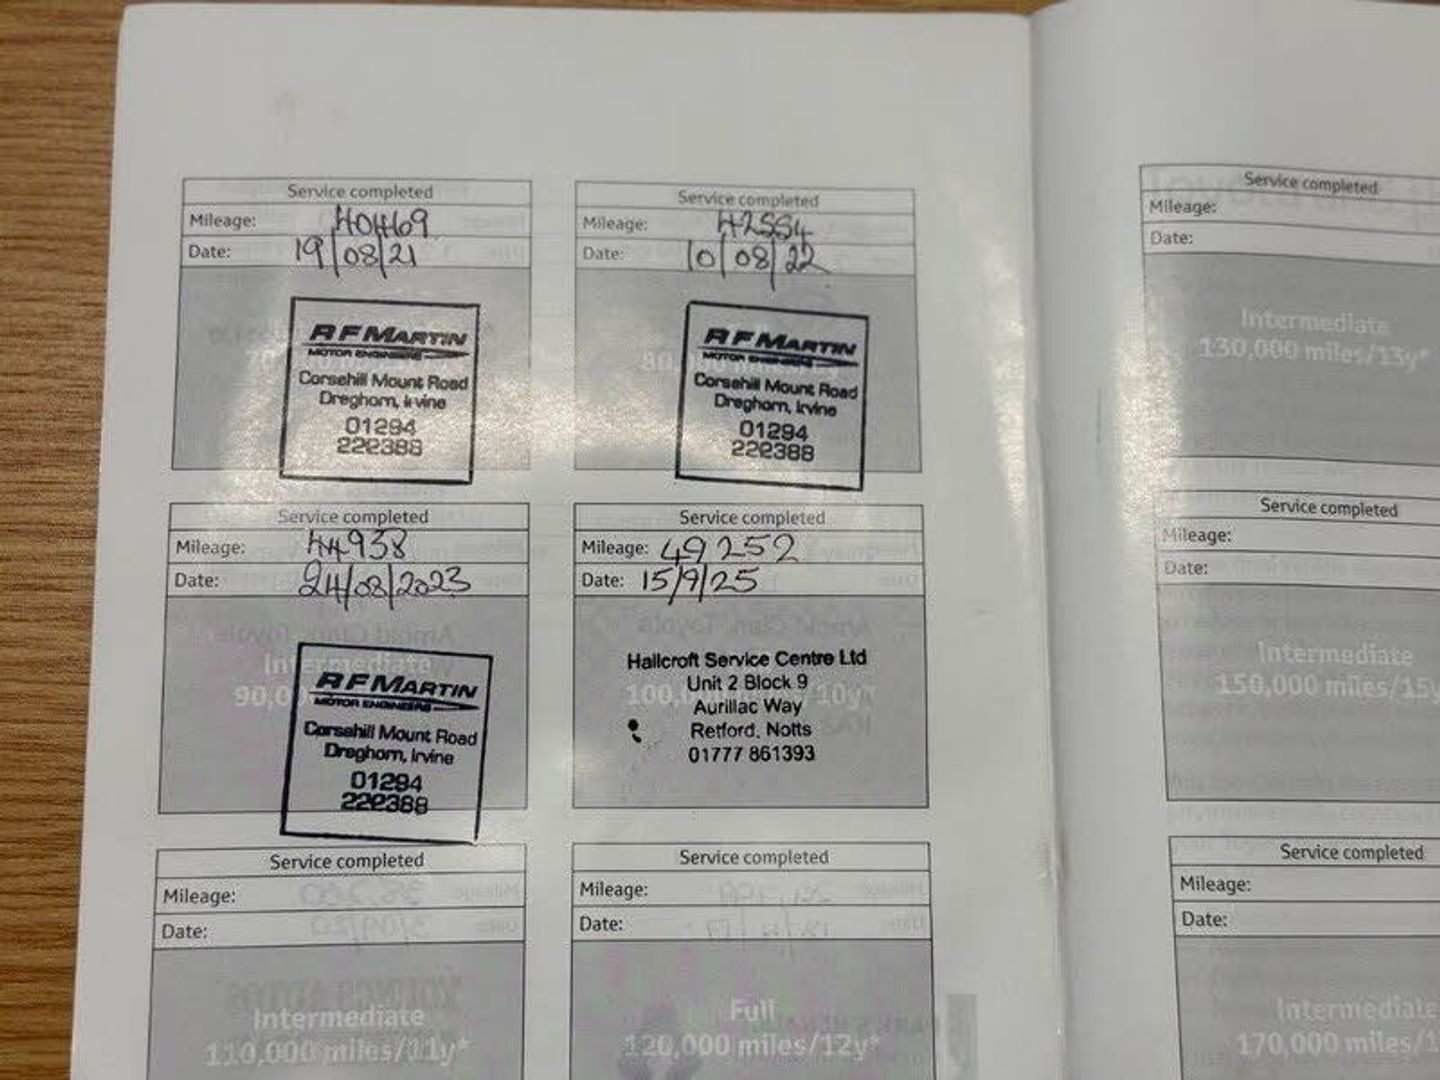 Service completed
Mileage: 40469
Date: 19/08/21
RF MARTIN
MOTOR ENGINEERS
Corsehill Mount Road
Dreghorn, Irvine
01294
222388
Service completed
Mileage: 42554
Date: 10/08/22
RF MARTIN
MOTOR ENGINEERS
Corsehill Mount Road
Dreghorn, Irvine
01294
222388
Service completed
Mileage: 44938
Date: 24/08/2023
Intermediate
90,0
RF MARTIN
MOTOR ENGINEERS
Corsehill Mount Road
Dreghorn, Irvine
01294
222388
Service completed
Mileage: 49252
Date: 15/9/25
100,000 miles/10y*
Hallcroft Service Centre Ltd
Unit 2 Block 9
Aurillac Way
Retford, Notts
01777 861393
Service completed
Mileage:
Date:
Intermediate
110,000 miles/11y*
Service completed
Mileage:
Date:
Full
120,000 miles/12y*
Service completed
Mileage:
Date:
Intermediate
130,000 miles/13y*
Service completed
Mileage:
Date:
Intermediate
150,000 miles/15y
Service completed
Mileage:
Date:
Intermediate
170,000 miles/1